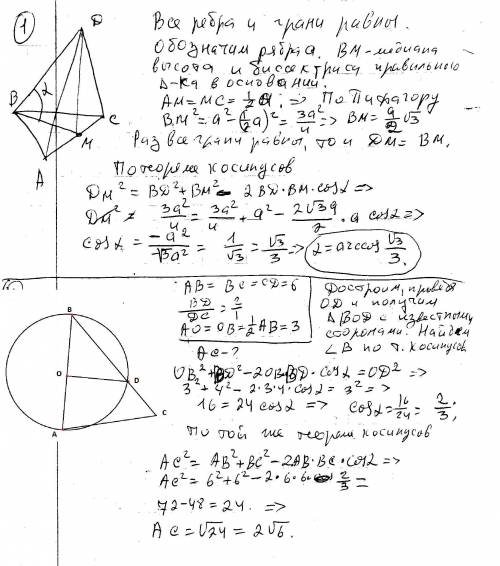 1
D
B
2
C
M
A
Все ребра и грани равны.
Обозначим рёбра. BM - медиана
высота и биссектриса правильного
Δ-ка в основании.
AM = MC = ½a. => По Пифагору
BM² = a² - (½a)² = 3a²/4 => BM = a/2 √3
Раз все грани равны, то и DM = BM.
По теореме косинусов
DM² = BD² + BM² - 2BD·BM·cosα =>
DM² = 3a²/4 = 3a²/4 + a² - 2√3a/2 · a cosα =>
cosα = -a²/-√3a² = 1/√3 = √3/3 => α = arccos √3/3.
B
O
D
A
C
AB = BC = CD = 6
BD/DC = 2/1
AO = OB = ½AB = 3
AC - ?
Достроим, проведя
OD и получим
ΔBOD с известными
сторонами. Найдём
∠B по т. косинусов
OB² + BD² - 2OB·BD·cosα = OD² =>
3² + 4² - 2·3·4·cosα = 3² =>
16 = 24 cosα => cosα = 16/24 = 2/3;
По той же теореме косинусов
AC² = AB² + BC² - 2AB·BC·cosα =>
AC² = 6² + 6² - 2·6·6· 2/3 =
72 - 48 = 24. =>
AC = √24 = 2√6.